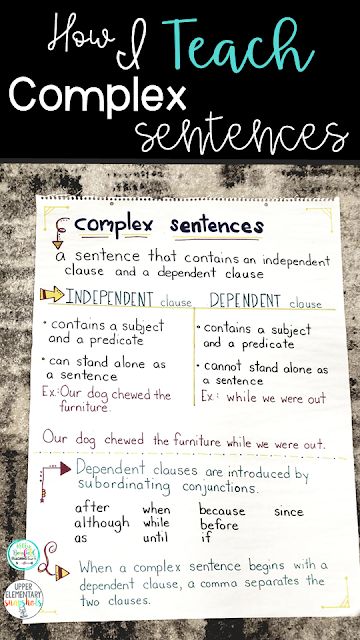 How I Teach
Complex
sentences
complex sentences
a sentence that contains an independent
clause and a dependent clause
INDEPENDENT clause
• contains a subject
and a predicate
• can stand alone as
a sentence
Ex.: Our dog chewed the
furniture.
DEPENDENT clause
• contains a subject
and a predicate
• cannot stand alone as
a sentence
Ex.: while we were out
Our dog chewed the furniture while we were out.
Dependent clauses are introduced by
subordinating conjunctions.
after when because since
although while before
as until if
When a complex sentence begins with a
dependent clause, a comma separates the
two clauses.
UPPER
ELEMENTARY
snapshots